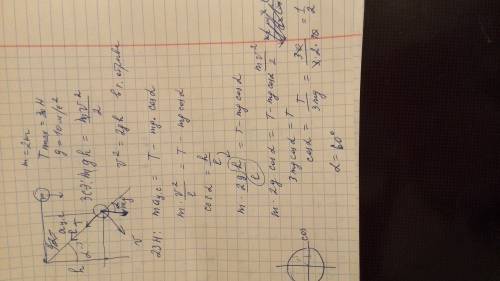 m = 2кг
T max = 30 Н
g = 10 м/с²
ЗСЭ: mgh = mv²/2
v² = 2gh в т. отрыва
2ЗН: ma ц.с = T - mg · cos α
m · v²/l = T - mg cos α
cos α = h/l
m · 2gh/l = T - mg cos α
m · 2g · cos α = T - mg cos α
3 mg cos α = T
cos α = T/3mg = 30/3 · 2 · 10 = 1/2
α = 60°
cos
h
T
mg
v
aц.с